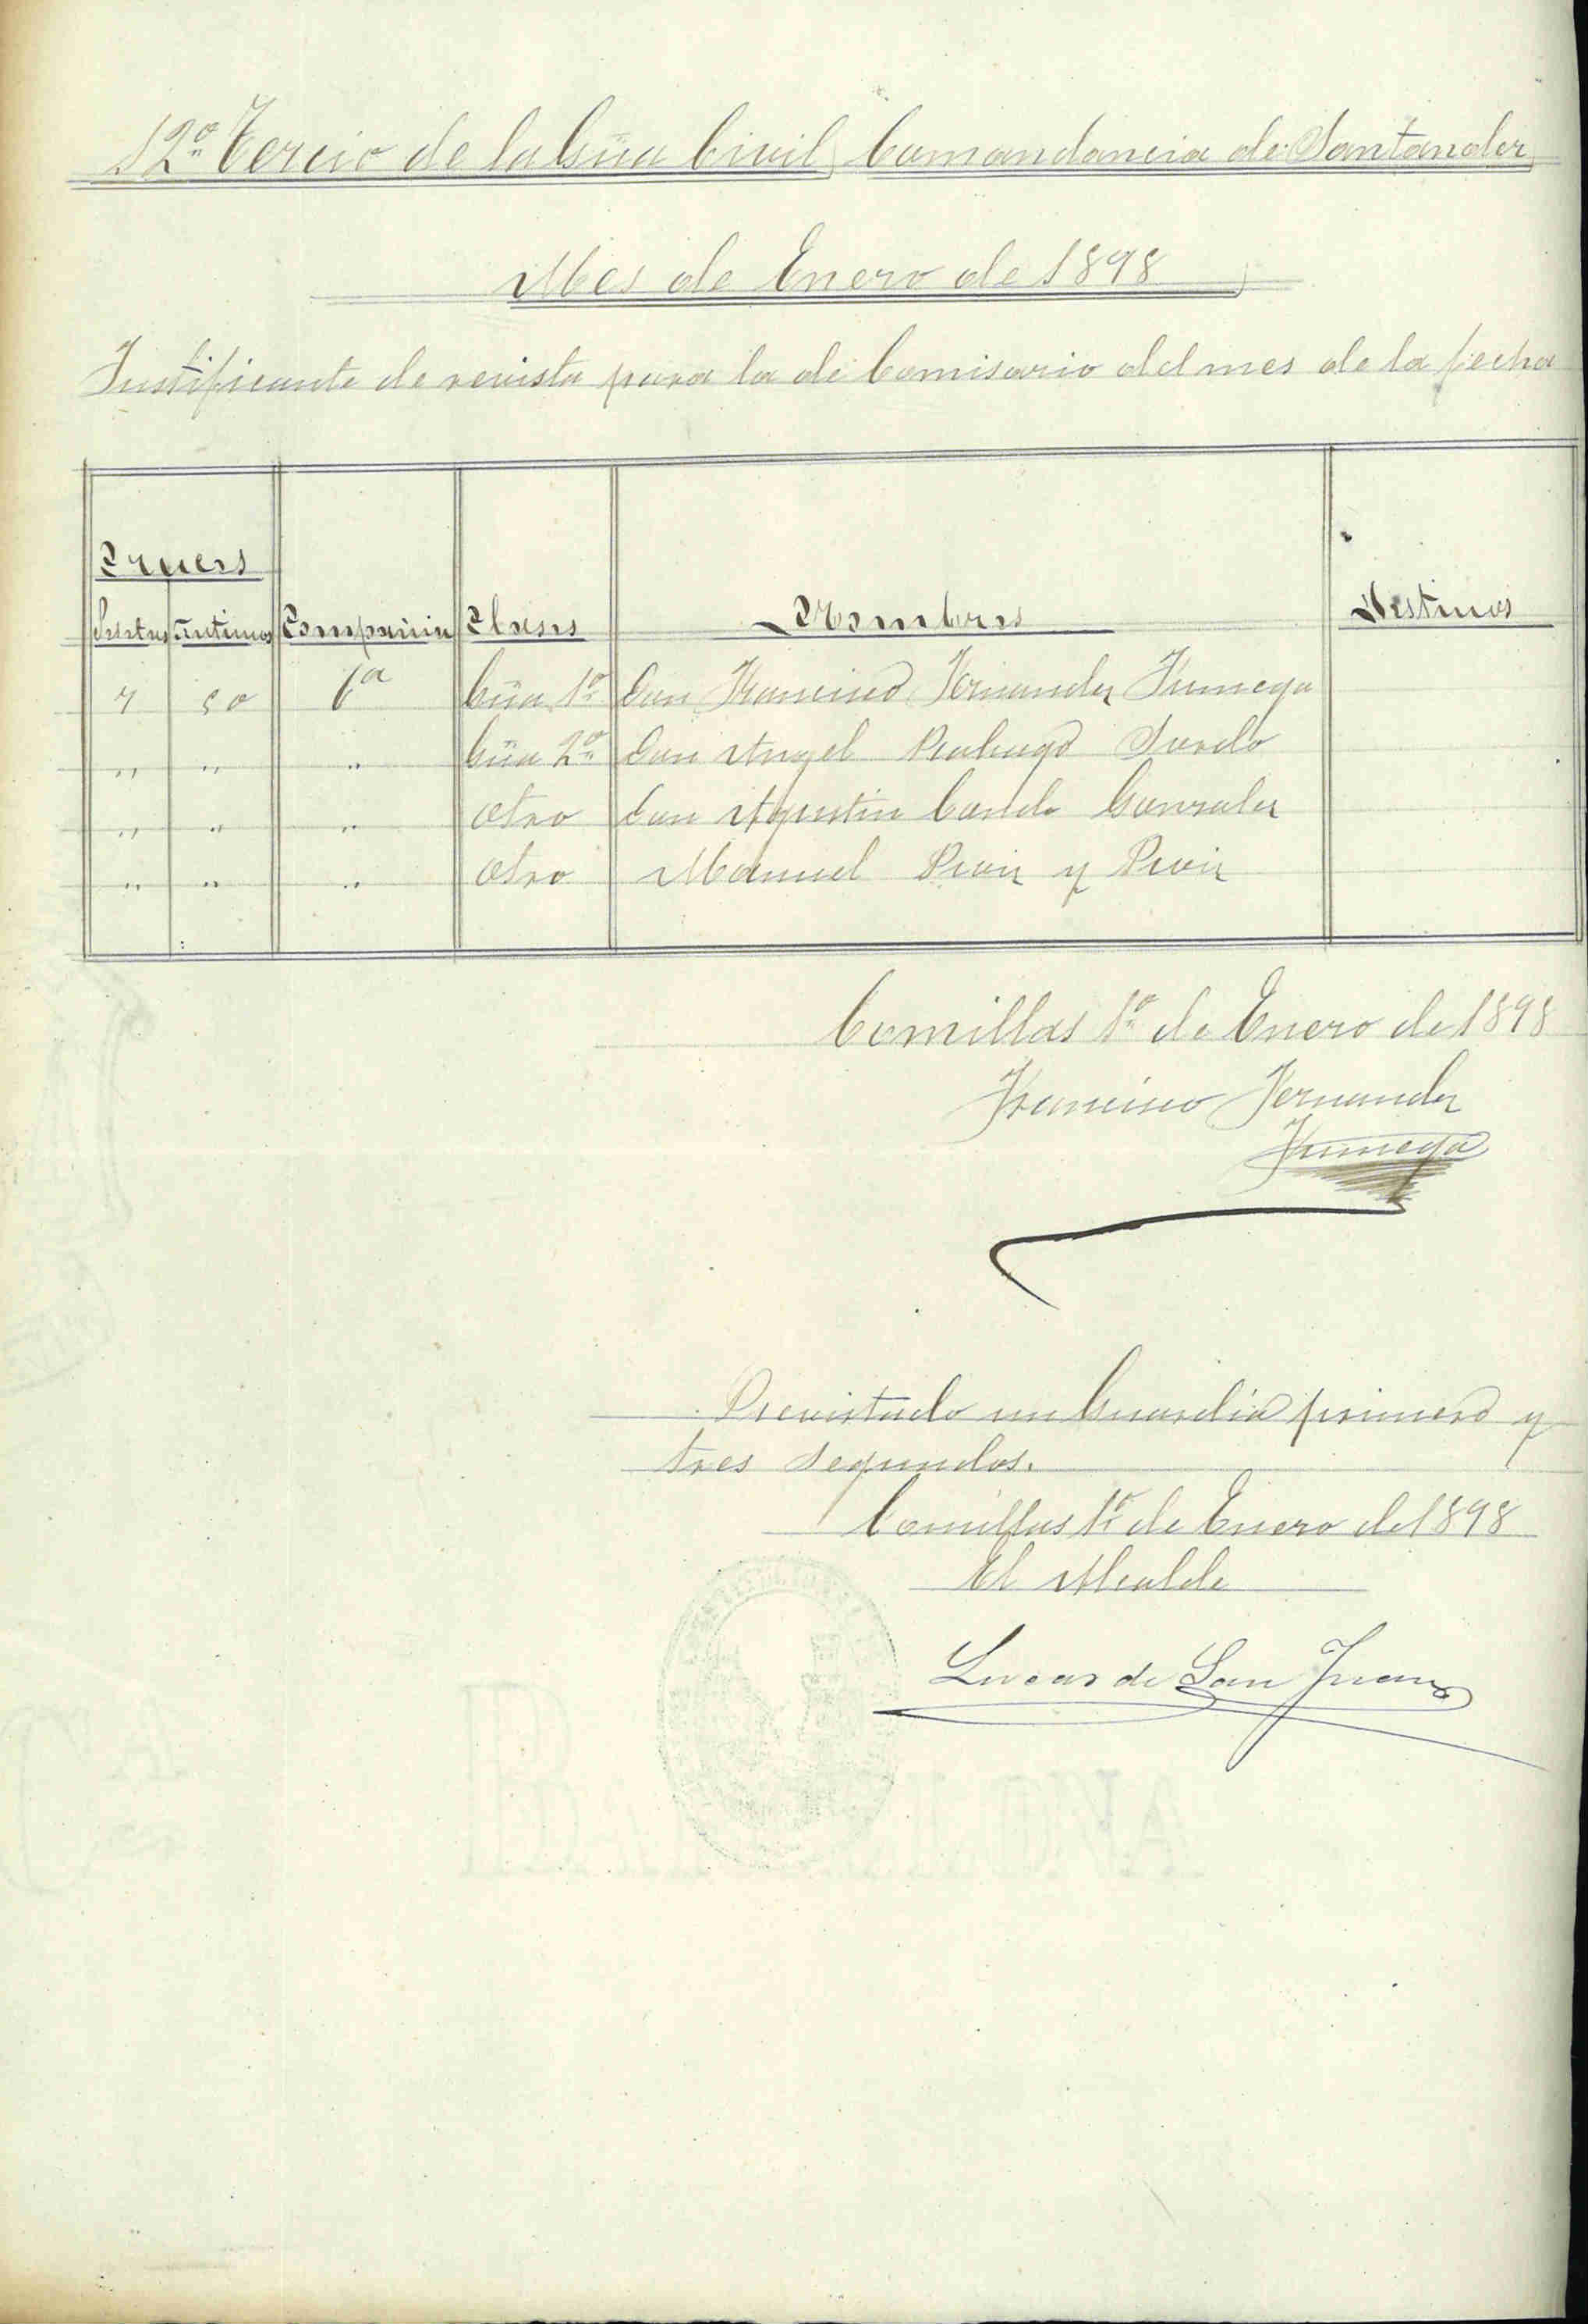 12º Tercio de la Gũa Civil Comandancia de Santander
Mes de Enero de 1898
Justificante de revista para la de Comisario del mes de la fecha
Cruces
Compañia Clases Nombres Destinos
7 50 6ª Gũa 1º Don Francisco Fernandez Fumega
" " " Gũa 2º Don Angel Pardo
" " " Otro Don Agustin Gonzalez
" " " Otro Manuel Ruiz y Ruiz
Comillas 1º de Enero de 1898
Francisco Fernandez
Fumega
Revistado un Guardia primero y
tres segundos.
Comillas 1º de Enero de 1898
El Alcalde
Lucas de San Juan